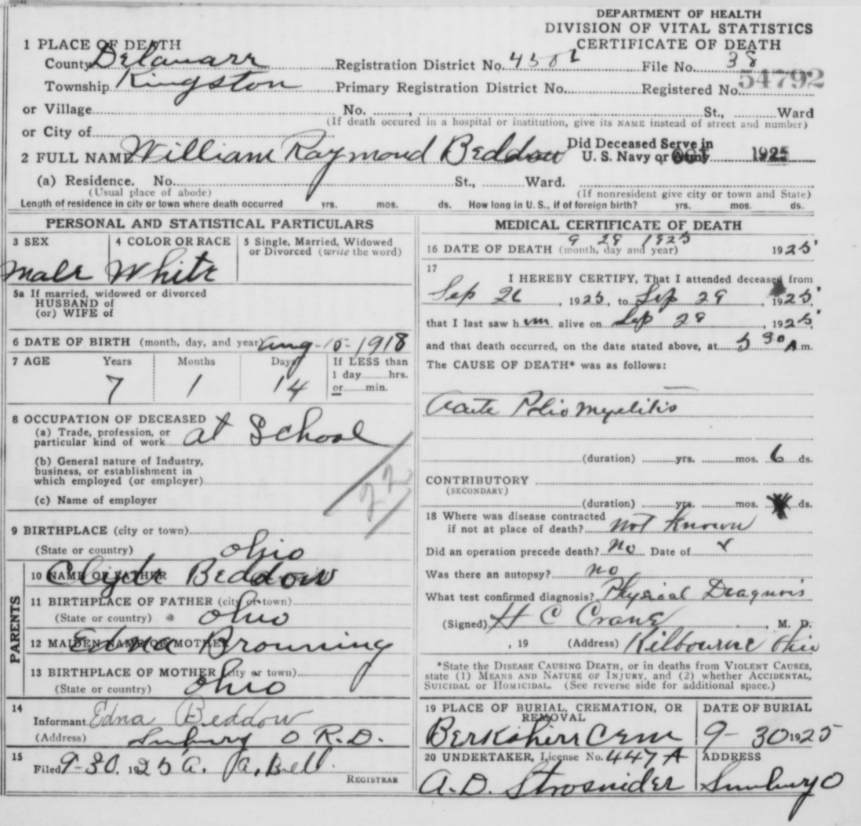 DEPARTMENT OF HEALTH
DIVISION OF VITAL STATISTICS
CERTIFICATE OF DEATH
1 PLACE OF DEATH
County Delaware Registration District No. File No. 38
Township Kingston Primary Registration District No. Registered No. 54792
or Village No. , St., Ward
(If death occured in a hospital or institution, give its NAME instead of street and number)
or City of
2 FULL NAME William Raymond Beddow Did Deceased Serve in U. S. Navy or 1925
(a) Residence. No. St., Ward.
(Usual place of abode) (If nonresident give city or town and State)
Length of residence in city or town where death occurred yrs. mos. ds. How long in U. S., if of foreign birth? yrs. mos. ds.
PERSONAL AND STATISTICAL PARTICULARS
3 SEX 4 COLOR OR RACE 5 Single, Married, Widowed
or Divorced (write the word)
Male White
5a If married, widowed or divorced
HUSBAND of
(or) WIFE of
6 DATE OF BIRTH (month, day, and year) Aug-15-1918
7 AGE Years Months Days If LESS than
1 day hrs.
or min.
7 1 14
8 OCCUPATION OF DECEASED
(a) Trade, profession, or
particular kind of work at School
(b) General nature of Industry,
business, or establishment in
which employed (or employer)
(c) Name of employer
22
9 BIRTHPLACE (city or town)
(State or country) Ohio
PARENTS
10 NAME OF FATHER Clyde Beddow
11 BIRTHPLACE OF FATHER (city or town)
(State or country) Ohio
12 MAIDEN NAME OF MOTHER Edna Browning
13 BIRTHPLACE OF MOTHER (city or town)
(State or country) Ohio
14
Informant Edna Beddow
(Address) Sunbury O R.D.
15
Filed 9-30, 1925 A. A. Bell
REGISTRAR
MEDICAL CERTIFICATE OF DEATH
16 DATE OF DEATH (month, day and year) 9 29 1925 1925
17
I HEREBY CERTIFY, That I attended deceased from
Sep 26, 1925, to Sep 29, 1925,
that I last saw him alive on Sep 29, 1925,
and that death occurred, on the date stated above, at 5 30 A.m.
The CAUSE OF DEATH* was as follows:
Acute Polio Myelitis
(duration) yrs. mos. 6 ds.
CONTRIBUTORY
(SECONDARY)
(duration) yrs. mos. ds.
18 Where was disease contracted
if not at place of death? not Known
Did an operation precede death? No Date of x
Was there an autopsy? no
What test confirmed diagnosis? Physical Diagnosis
(Signed) H C Crane, M. D.
, 19 (Address) Kilbourne Ohio
*State the DISEASE CAUSING DEATH, or in deaths from VIOLENT CAUSES,
state (1) MEANS AND NATURE OF INJURY, and (2) whether ACCIDENTAL,
SUICIDAL or HOMICIDAL. (See reverse side for additional space.)
19 PLACE OF BURIAL, CREMATION, OR REMOVAL DATE OF BURIAL
Berkshire Cem 9-30 1925
20 UNDERTAKER, License No. 447A ADDRESS
A.D. Strosnider Sunbury O